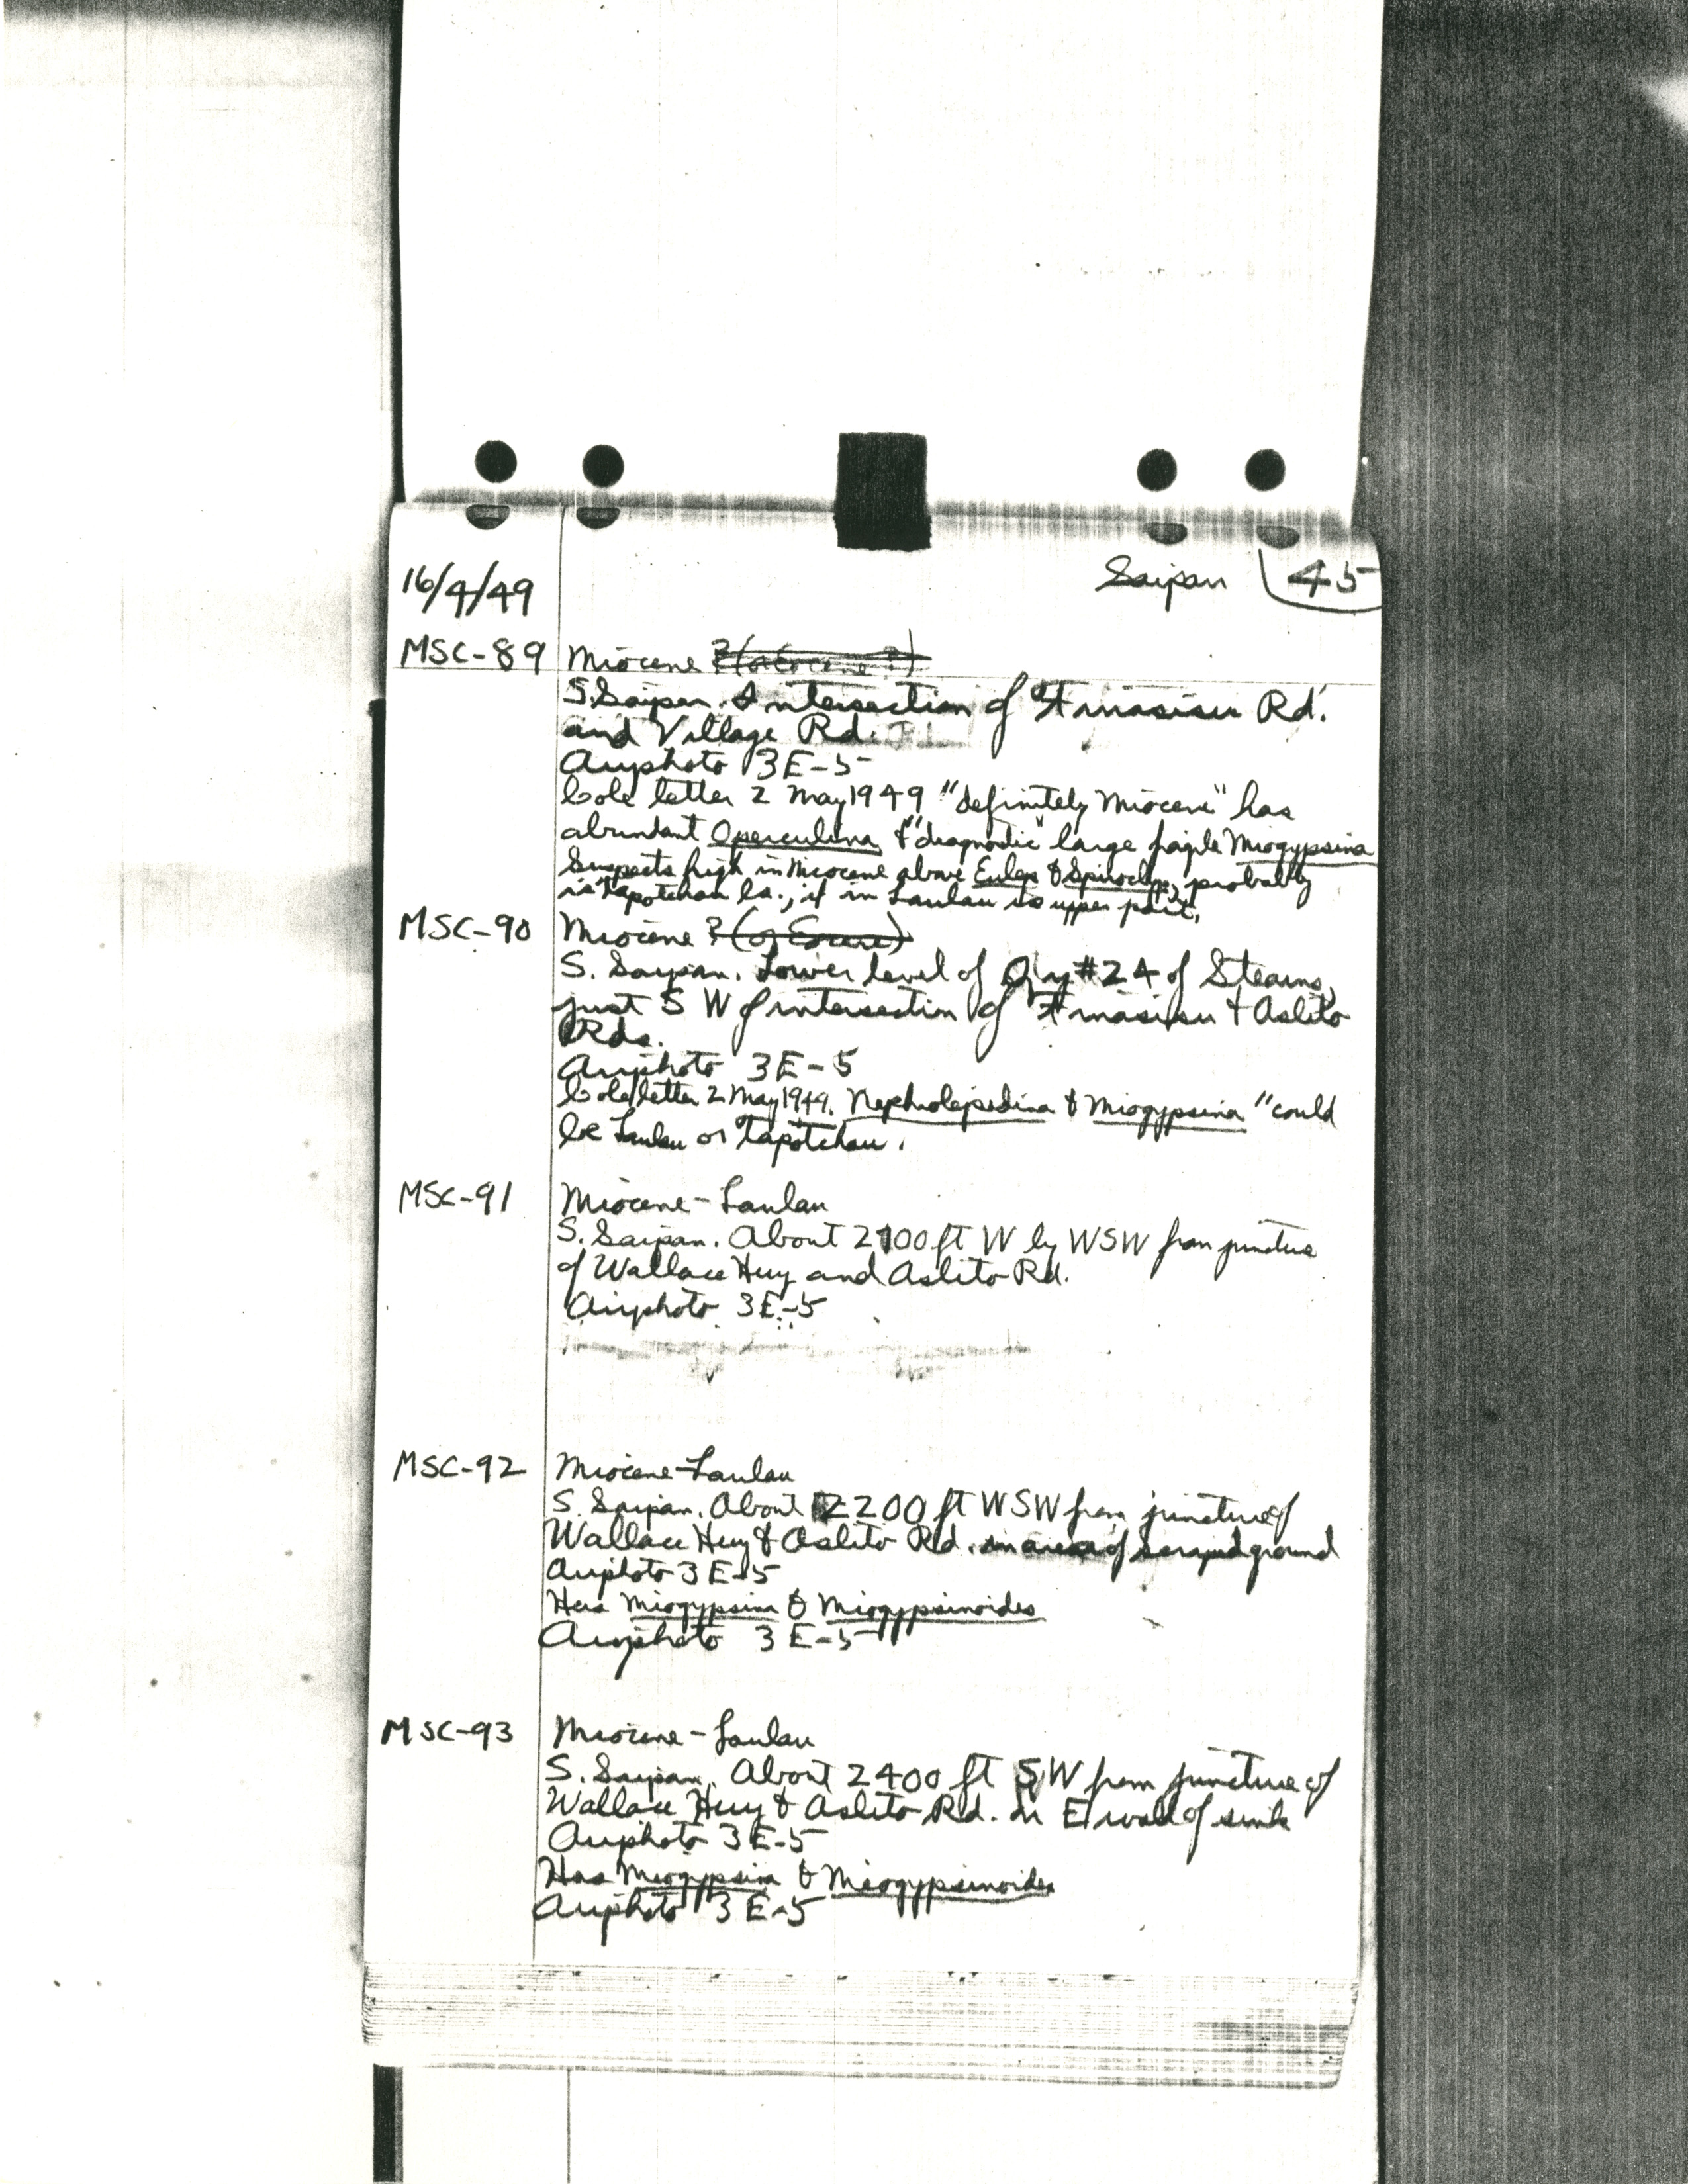 Saipan 45
16/4/49
MSC-89 Miocene ? (or Eocene ?)
S. Saipan. Intersection of Finasisu Rd.
and Village Rd.
Airphoto 3E-5
Cole letter 2 May 1949 "definitely Miocene" has
abundant Operculina & "diagnostic" large fragile Miogypsina
Suspects high in Miocene above Eulep & Spiroclyp, probably
is Tapotchau ls., if in Laulau is upper part.
MSC-90 Miocene ? (or Eocene)
S. Saipan. Lower level of Qry #24 of Stearns,
just SW of intersection of Finasisu & Aslito
Rds.
Airphoto 3E-5
Cole letter 2 May 1949. Nephrolepidina & Miogypsina "could
be Laulau or Tapotchau.
MSC-91 Miocene - Laulau
S. Saipan. About 2100 ft W by WSW from juncture
of Wallace Hwy and Aslito Rd.
Airphoto 3E-5
MSC-92 Miocene - Laulau
S. Saipan. About 2200 ft WSW from juncture of
Wallace Hwy & Aslito Rd. in area of scraped ground
Airphoto 3E-5
Has Miogypsina & Miogypsinoides
Airphoto 3E-5
MSC-93 Miocene - Laulau
S. Saipan. About 2400 ft SW from juncture of
Wallace Hwy & Aslito Rd. In E wall of sink
Airphoto 3E-5
Has Miogypsina & Miogypsinoides
Airphoto 3E-5